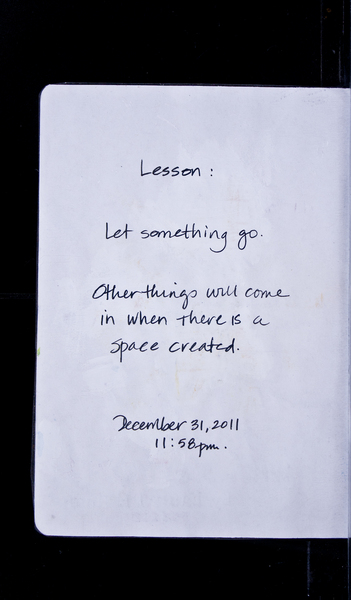 Lesson :
Let something go.
Other things will come
in when there is a
space created.
December 31, 2011
11:58pm.